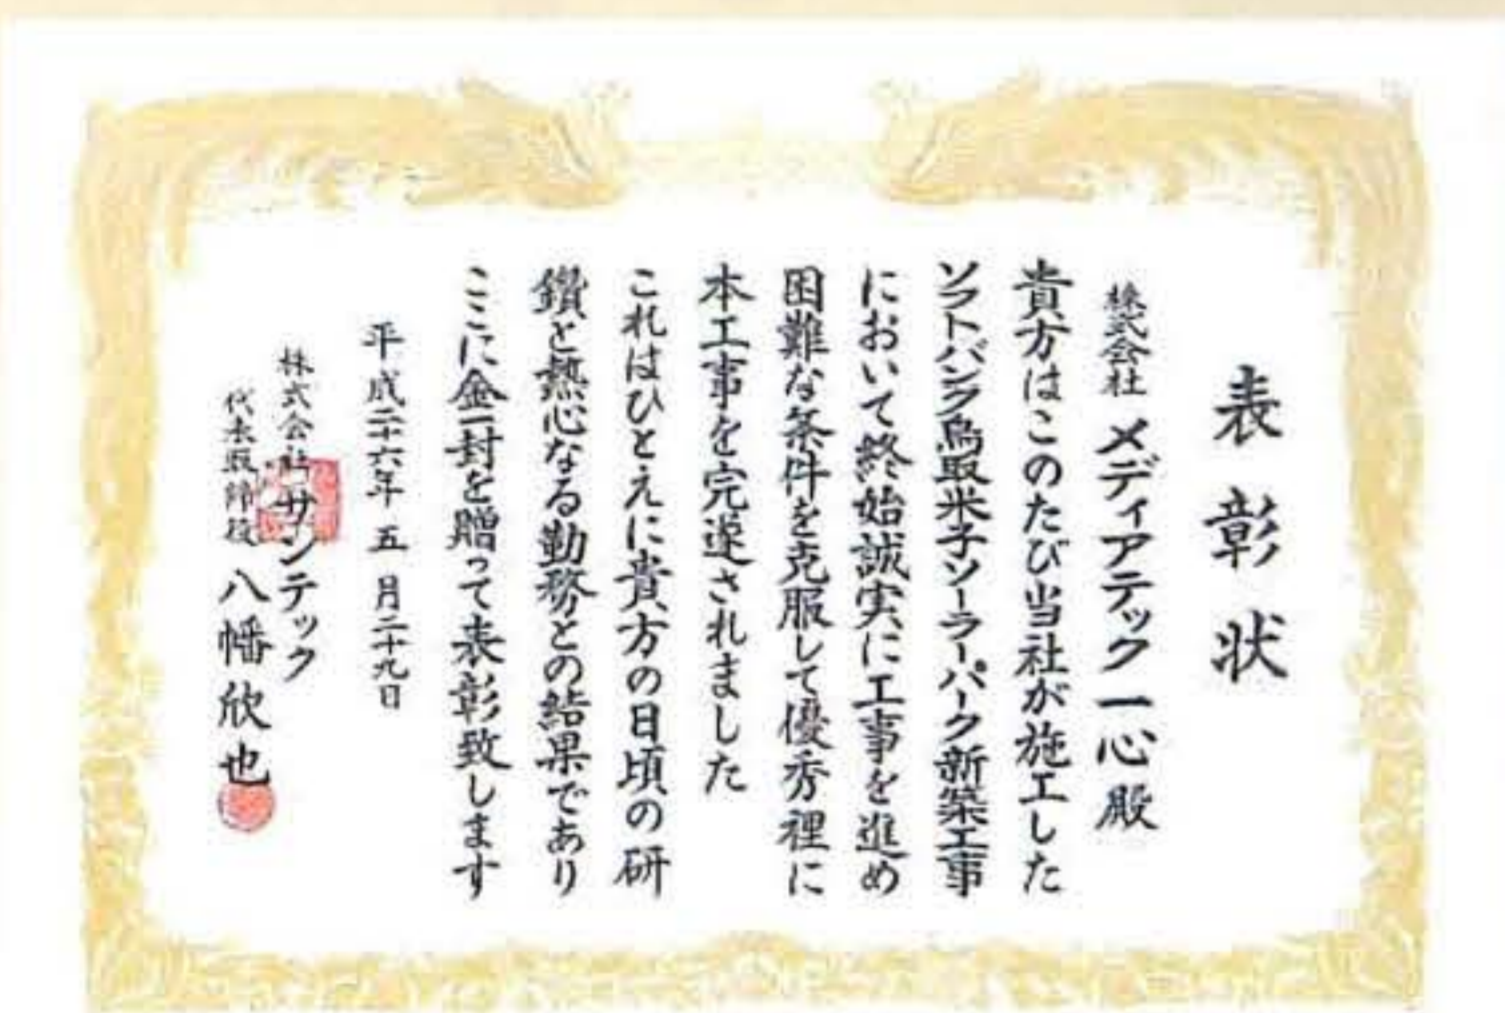 表彰状
株式会社 メディアテック一心殿
貴方はこのたび当社が施工した
ソフトバンク鳥取米子ソーラーパーク新築工事
において終始誠実に工事を進め
困難な条件を克服して優秀裡に
本工事を完遂されました
これはひとえに貴方の日頃の研
鑽と熱心なる勤務との結果であり
ここに金一封を贈って表彰致します
平成二十六年五月二十九日
株式会社サンテック
代表取締役 八幡欣也